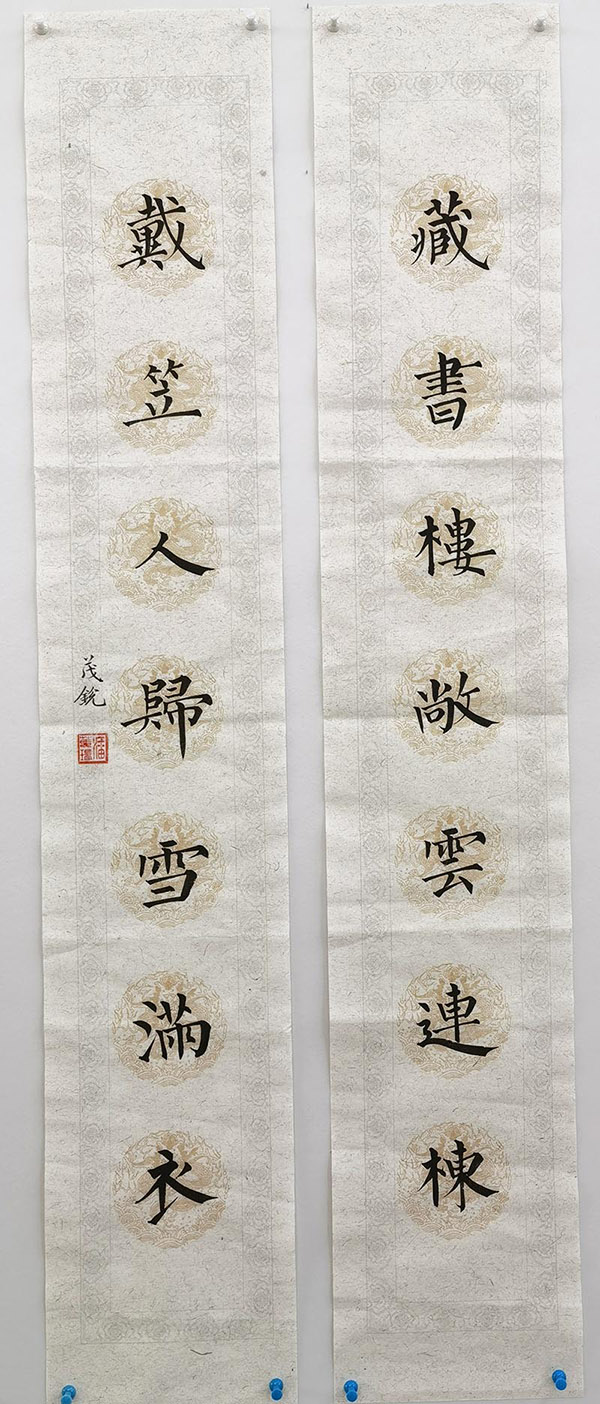 藏書樓敞雲連棟
戴笠人歸雪滿衣
茂銳